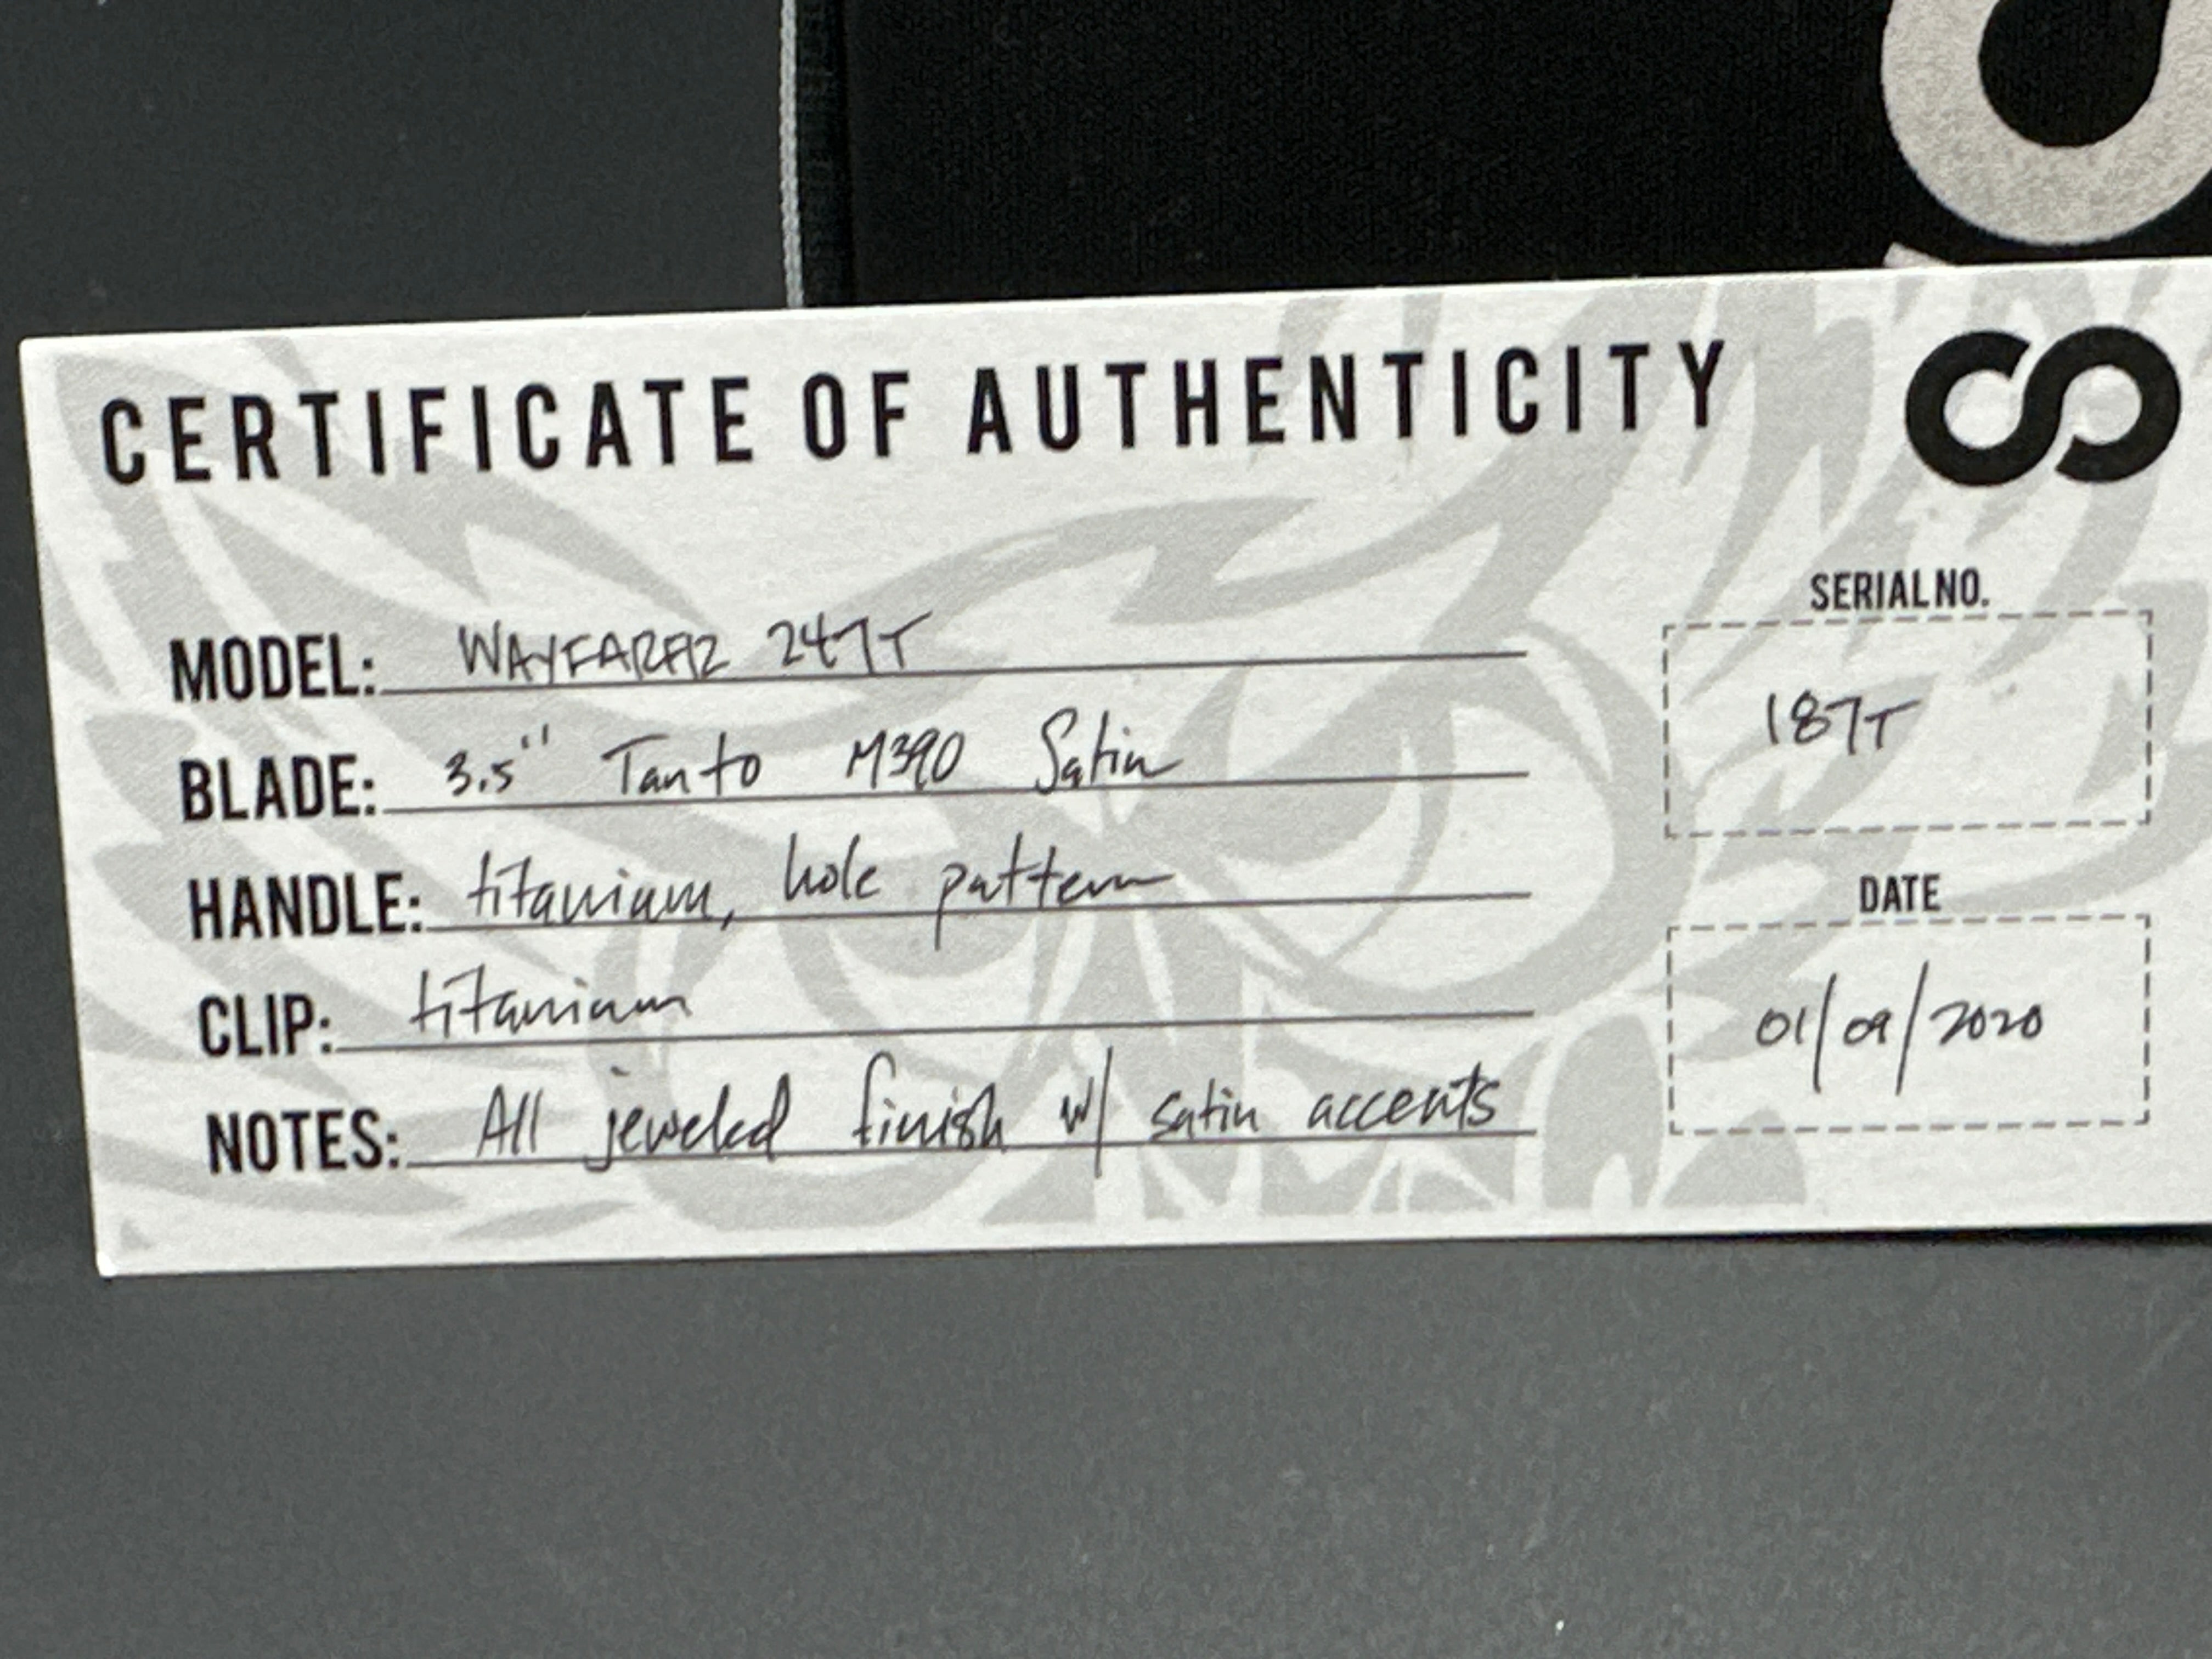 CERTIFICATE OF AUTHENTICITY
MODEL: WAYFARER 247T
BLADE: 3.5" Tanto M390 Satin
HANDLE: titanium, hole pattern
CLIP: titanium
NOTES: All jeweled finish w/ satin accents
SERIAL NO.
187T
DATE
01/09/2020